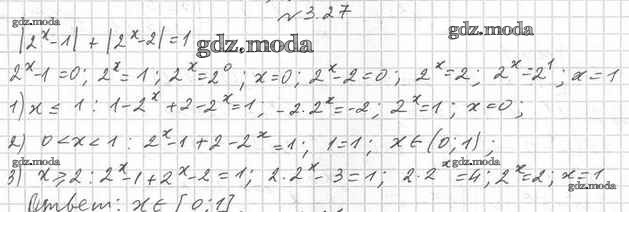 №3.27
gdz.moda
|2^x-1| + |2^x-2| = 1 gdz.moda gdz.moda
2^x-1=0; 2^x=1; 2^x=2^0; x=0; 2^x-2=0; 2^x=2; 2^x=2^1; x=1
1) x ≤ 1: 1-2^x+2-2^x=1, -2·2^x=-2; 2^x=1; x=0;
2) 0<x<1: 2^x-1+2-2^x=1; 1=1; x∈(0;1);
gdz.moda gdz.moda
3) x⩾2: 2^x-1+2^x-2=1; 2·2^x-3=1; 2·2^x=4; 2^x=2; x=1
gdz.moda
Ответ: x∈[0;1]